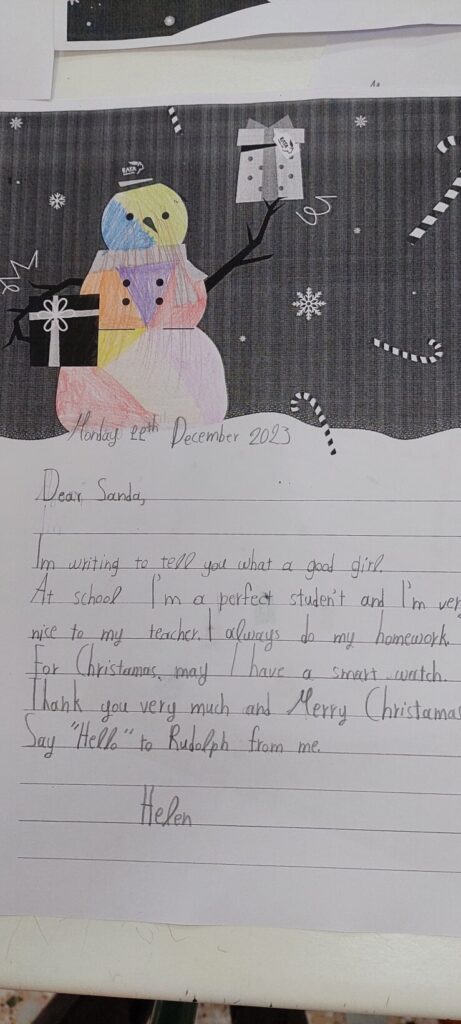 Monday 22th December 2023
Dear Sanda,
I'm writing to tell you what a good girl.
At school I'm a perfect studen't and I'm ver
nice to my teacher. I always do my homework.
For Christamas, may I have a smart watch.
Thank you very much and Merry Christamas
Say "Hello" to Rudolph from me.
Helen